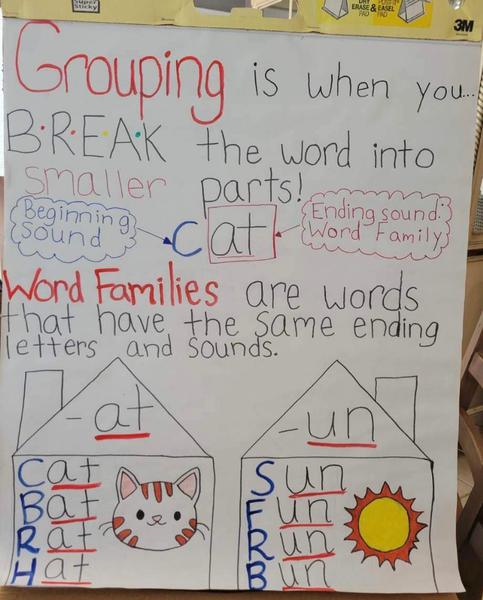 Super Sticky
DRY ERASE PAD
&
POST-IT EASEL PAD
3M
Grouping is when you...
B.R.E.A.K the word into
smaller parts!
Beginning Sound
Cat
Ending sound: Word Family
Word Families are words
that have the same ending
letters and sounds.
-at
Cat
Bat
Rat
Hat
-un
Sun
Fun
Run
Bun